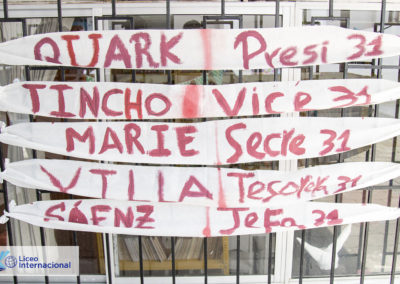 QUARK Presi 31
TINCHO Vice 31
MARIE Secre 31
VILLA 31
SÁENZ Jefa 31
Liceo
internacional